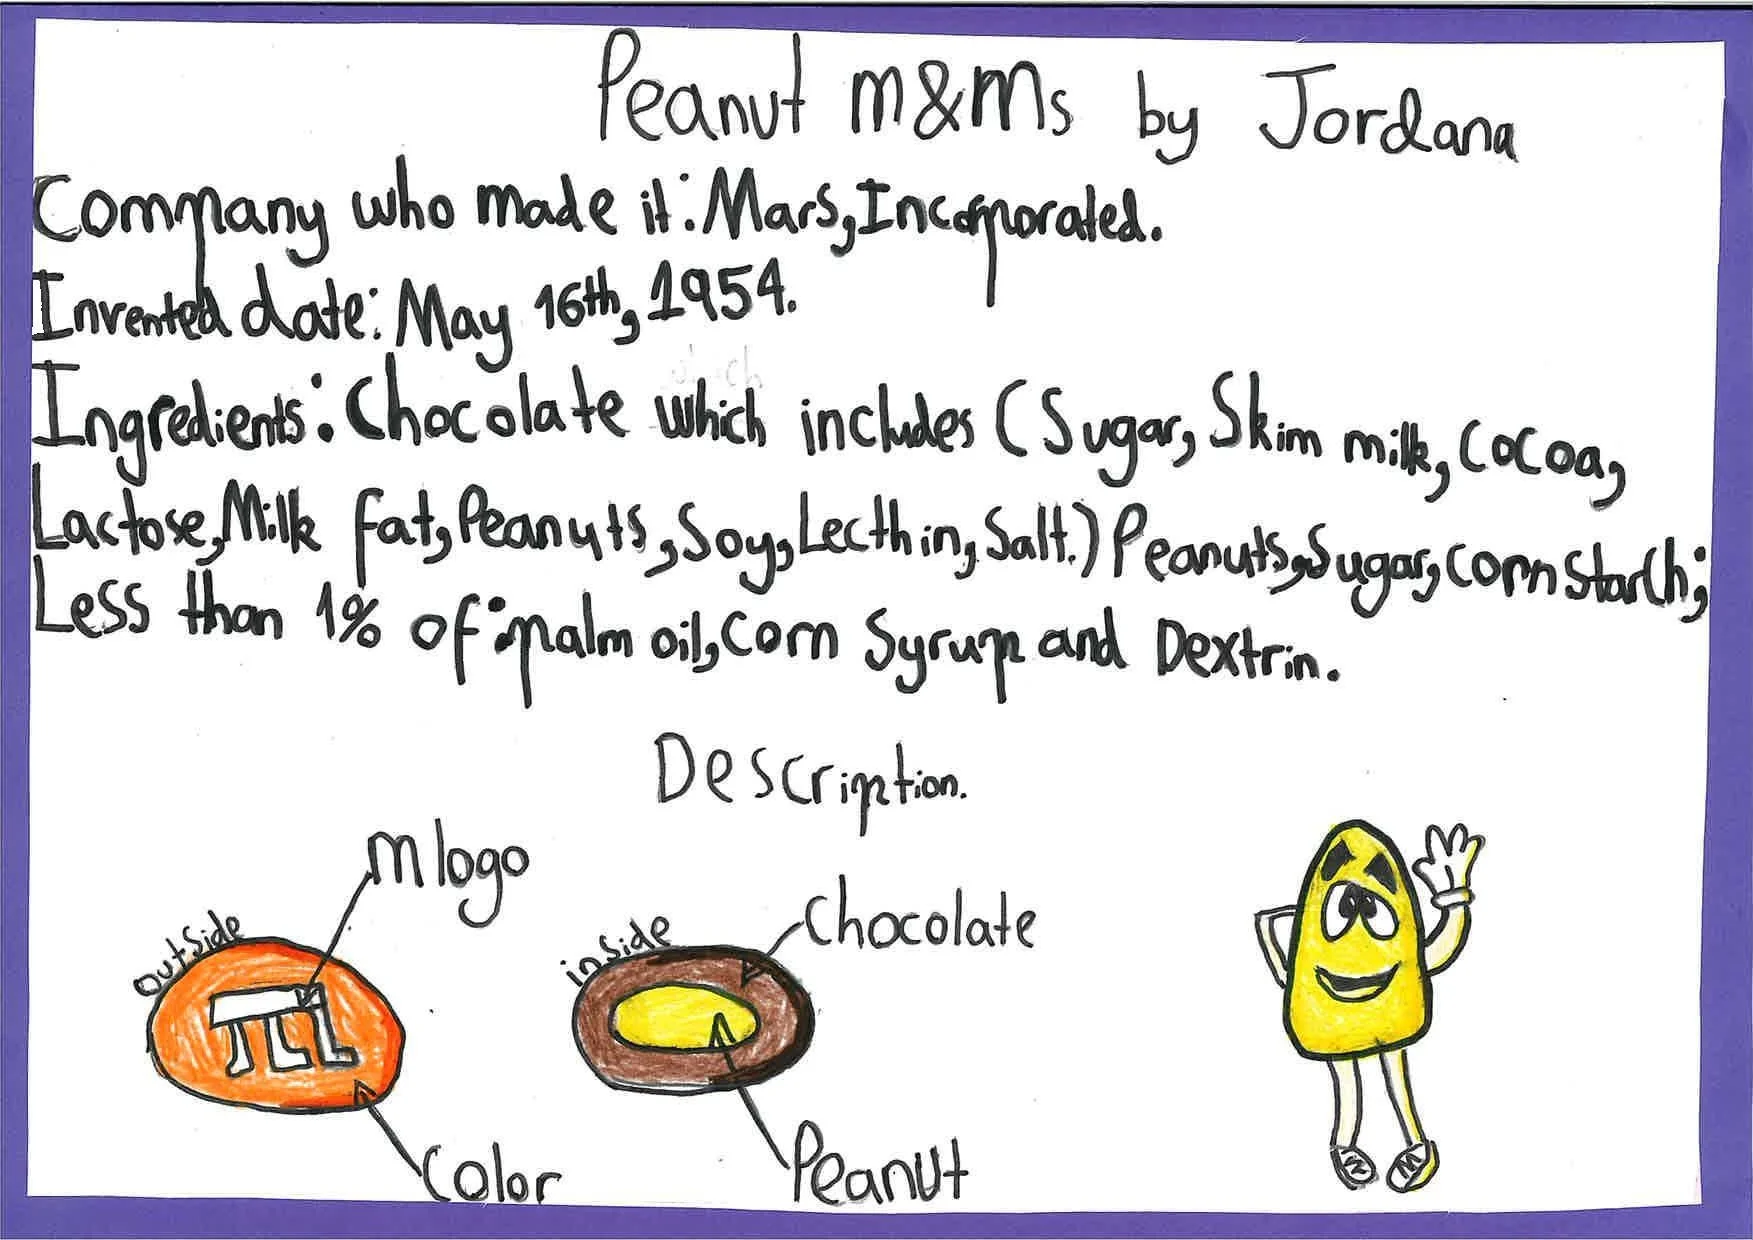 Peanut M&Ms by Jordana
Company who made it: Mars, Incorporated.
Invented date: May 16th, 1954.
Ingredients: Chocolate which includes (Sugar, Skim milk, Cocoa,
Lactose, Milk fat, Peanuts, Soy, Lecthin, Salt.) Peanuts, Sugar, Corn Starch;
Less than 1% of: palm oil, Corn Syrup and Dextrin.
Description.
M logo
outside
m
Color
inside
Chocolate
Peanut
M
M